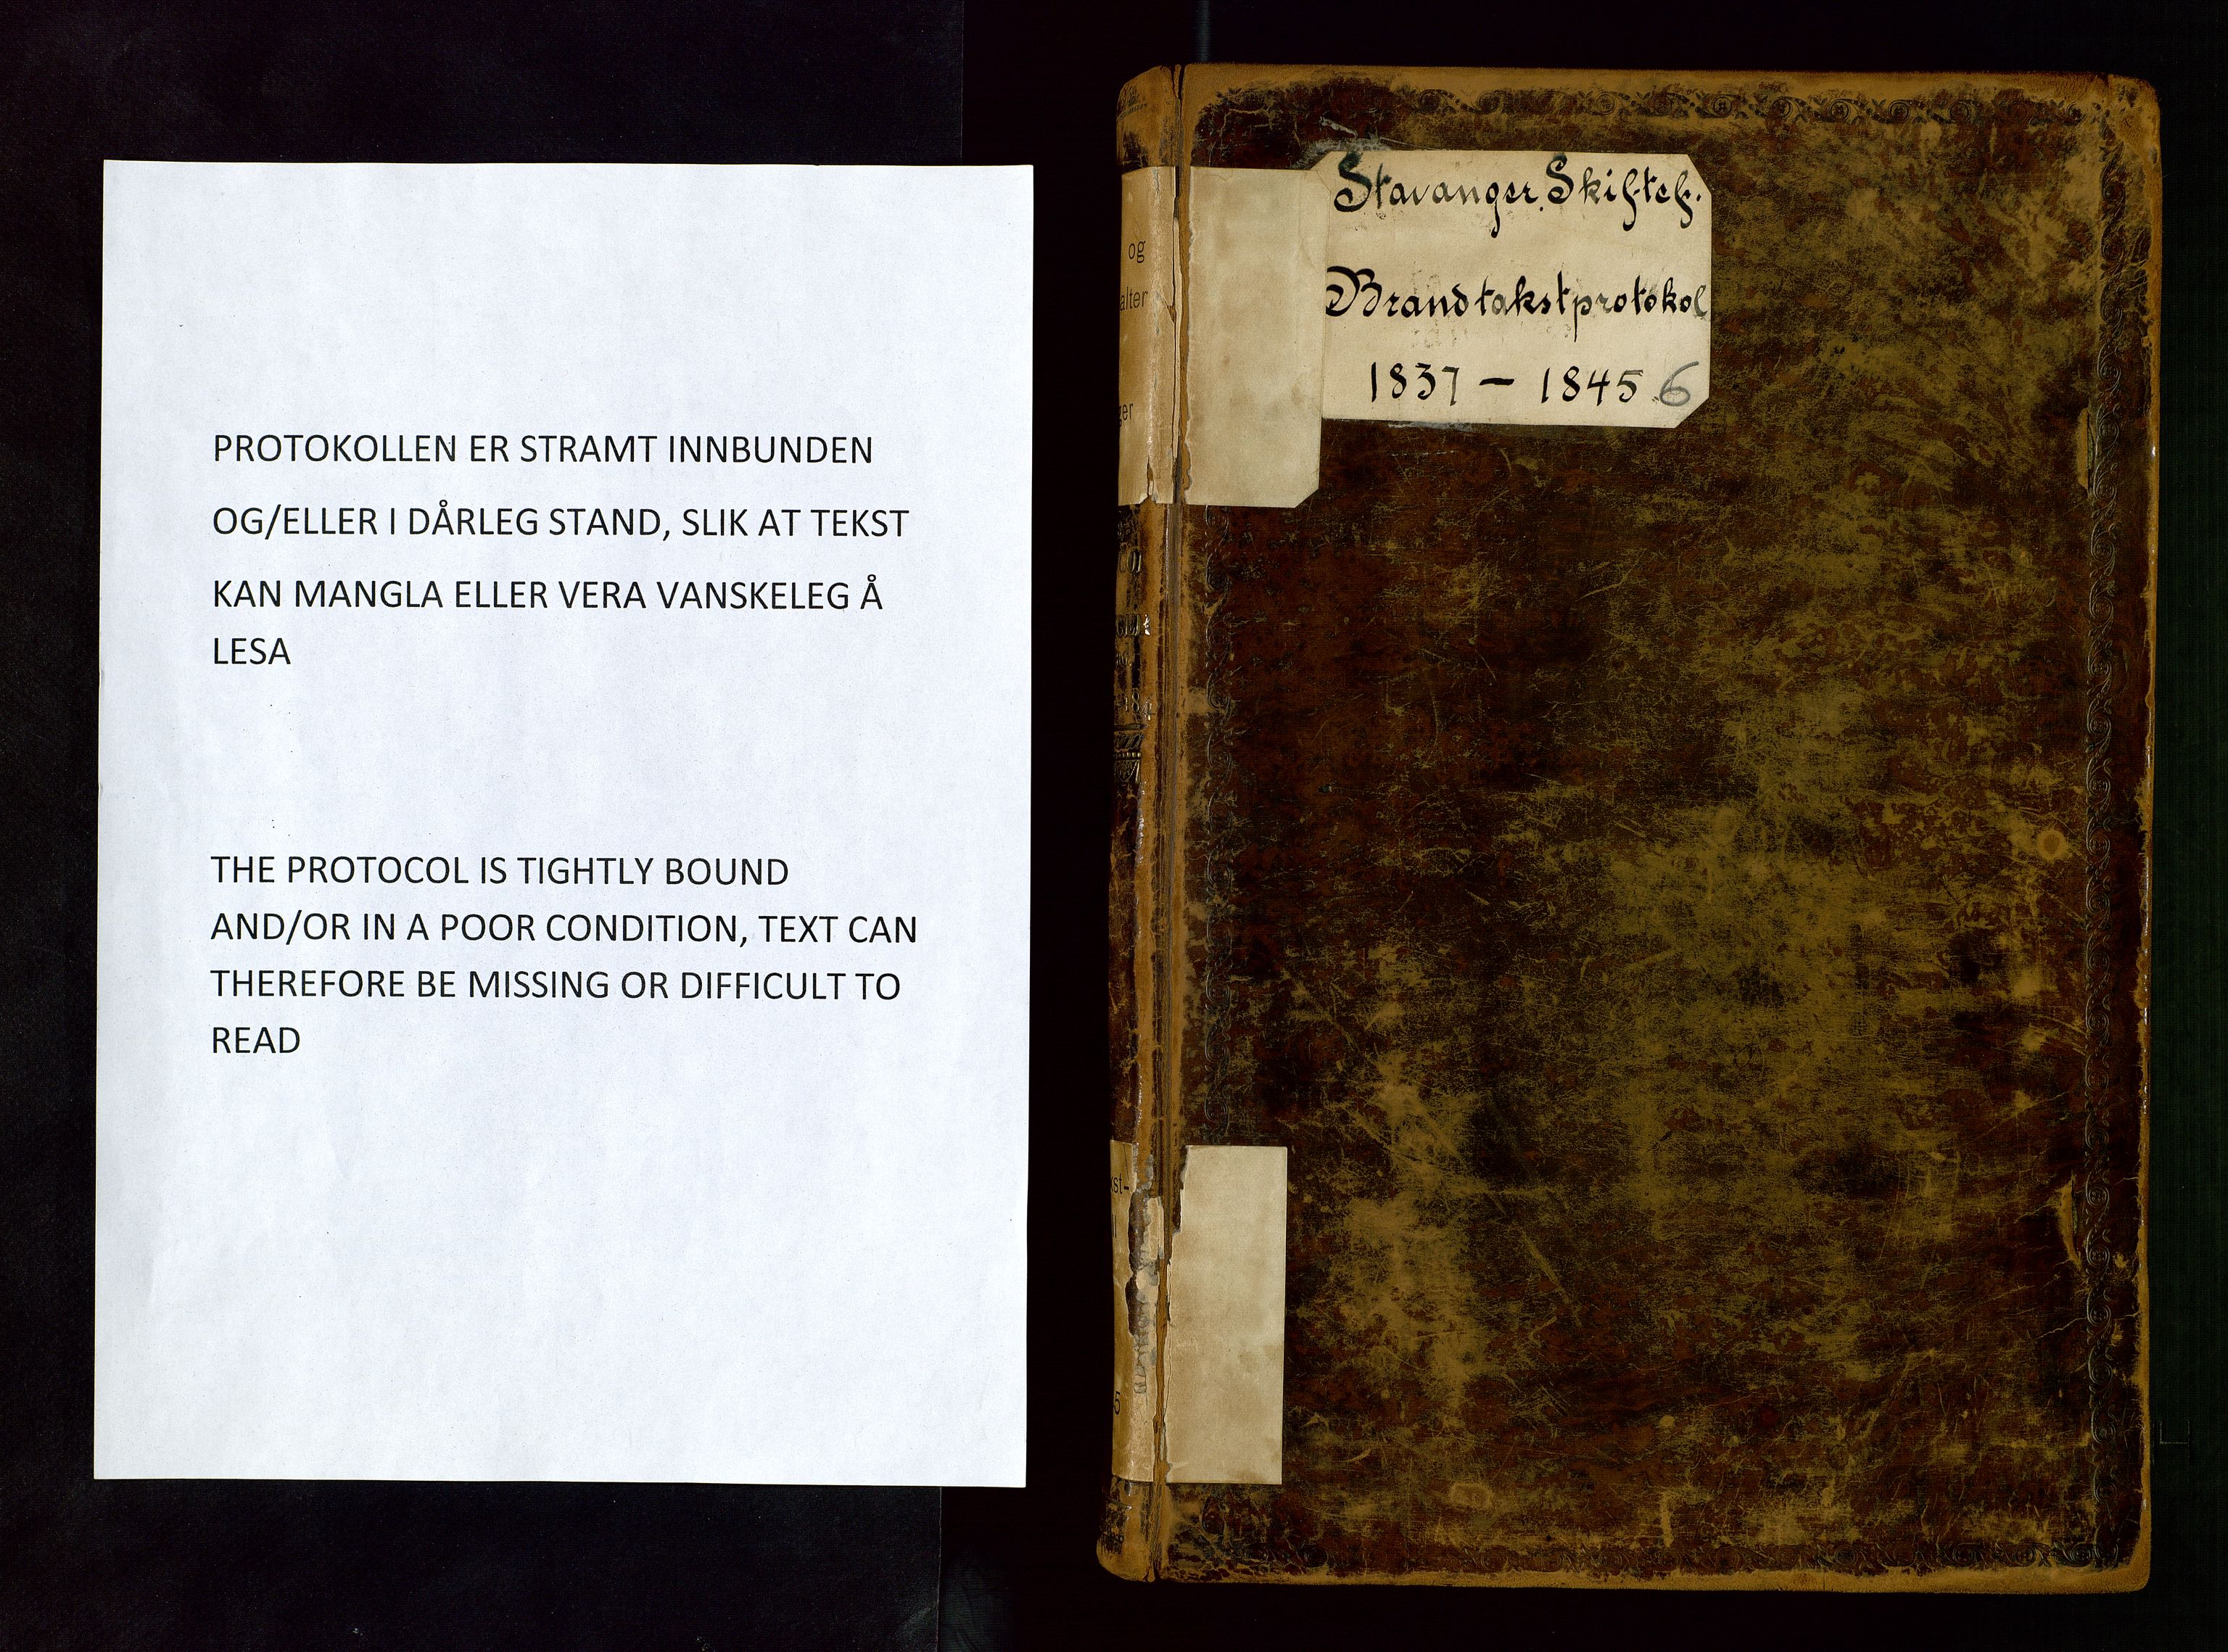 PROTOKOLLEN ER STRAMT INNBUNDEN
OG/ELLER I DÅRLEG STAND, SLIK AT TEKST
KAN MANGLA ELLER VERA VANSKELEG Å
LESA
THE PROTOCOL IS TIGHTLY BOUND
AND/OR IN A POOR CONDITION, TEXT CAN
THEREFORE BE MISSING OR DIFFICULT TO
READ
Stavanger Skiftef.
Brandtakstprotokol
1837 - 1845 6
og
alter
ger
kst-
5